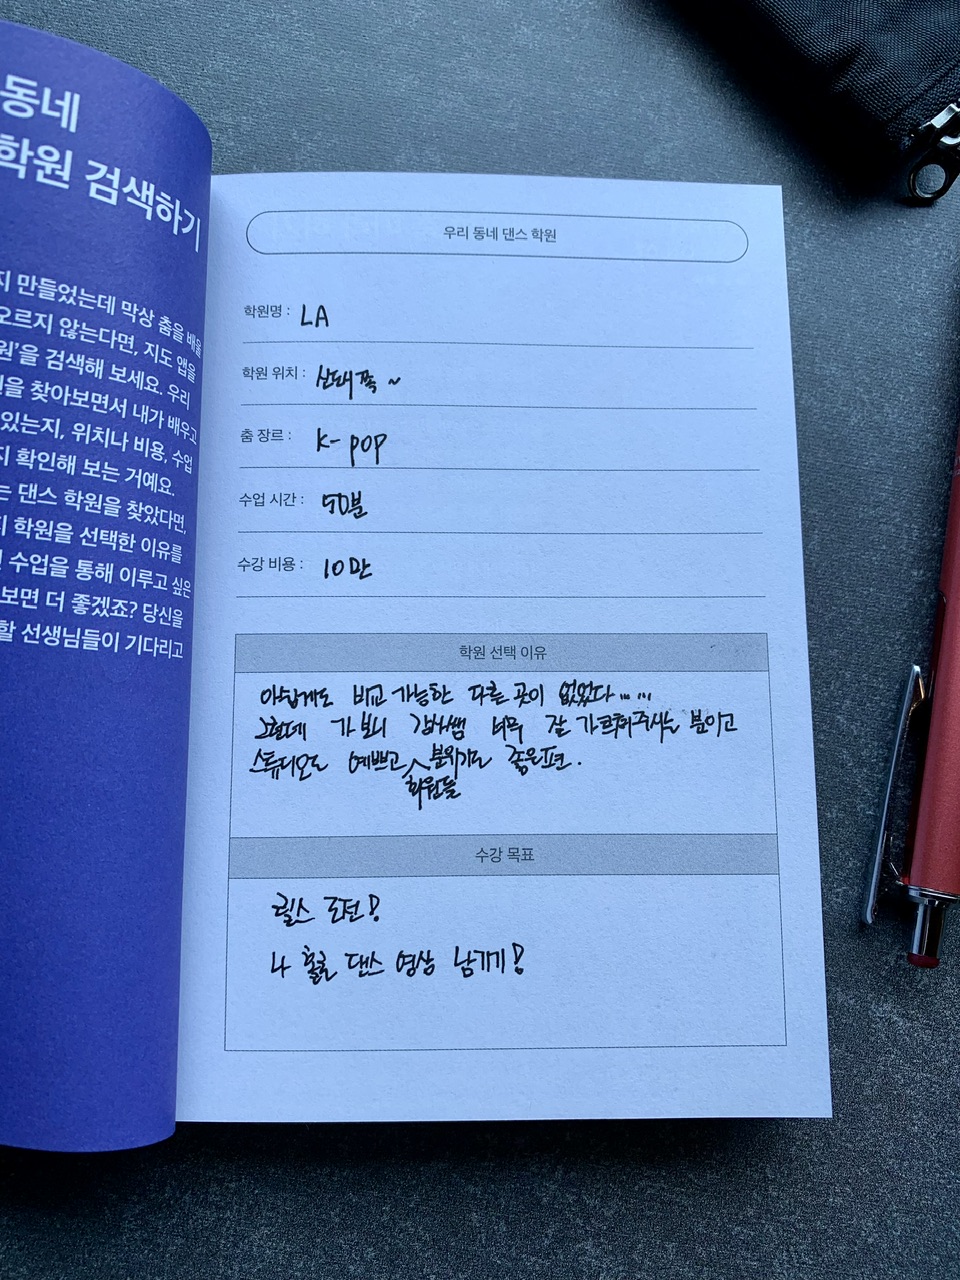 동네
학원 검색하기
지 만들었는데 막상 춤을 배울
오르지 않는다면, 지도 앱을
원'을 검색해 보세요. 우리
을 찾아보면서 내가 배우고
있는지, 위치나 비용, 수업
지 확인해 보는 거예요.
는 댄스 학원을 찾았다면,
학원을 선택한 이유를
수업을 통해 이루고 싶은
보면 더 좋겠죠? 당신을
할 선생님들이 기다리고
우리 동네 댄스 학원
학원명 : LA
학원 위치 : 쪽 ~
춤 장르 : K-pop
수업 시간 : 50분
수강 비용 : 10만
학원 선택 이유
아쉽게도 비교 가능한 다른 곳이 없었다... ...
그런데 가 보니 강사쌤 너무 잘 가르쳐주시는 분이고
스튜디오도 예쁘고 학원들 분위기도 좋은편.
수강 목표
릴스 도전!
나 홀로 댄스 영상 남기기!